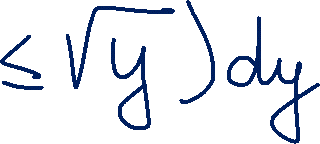 ≤ √y ) dy